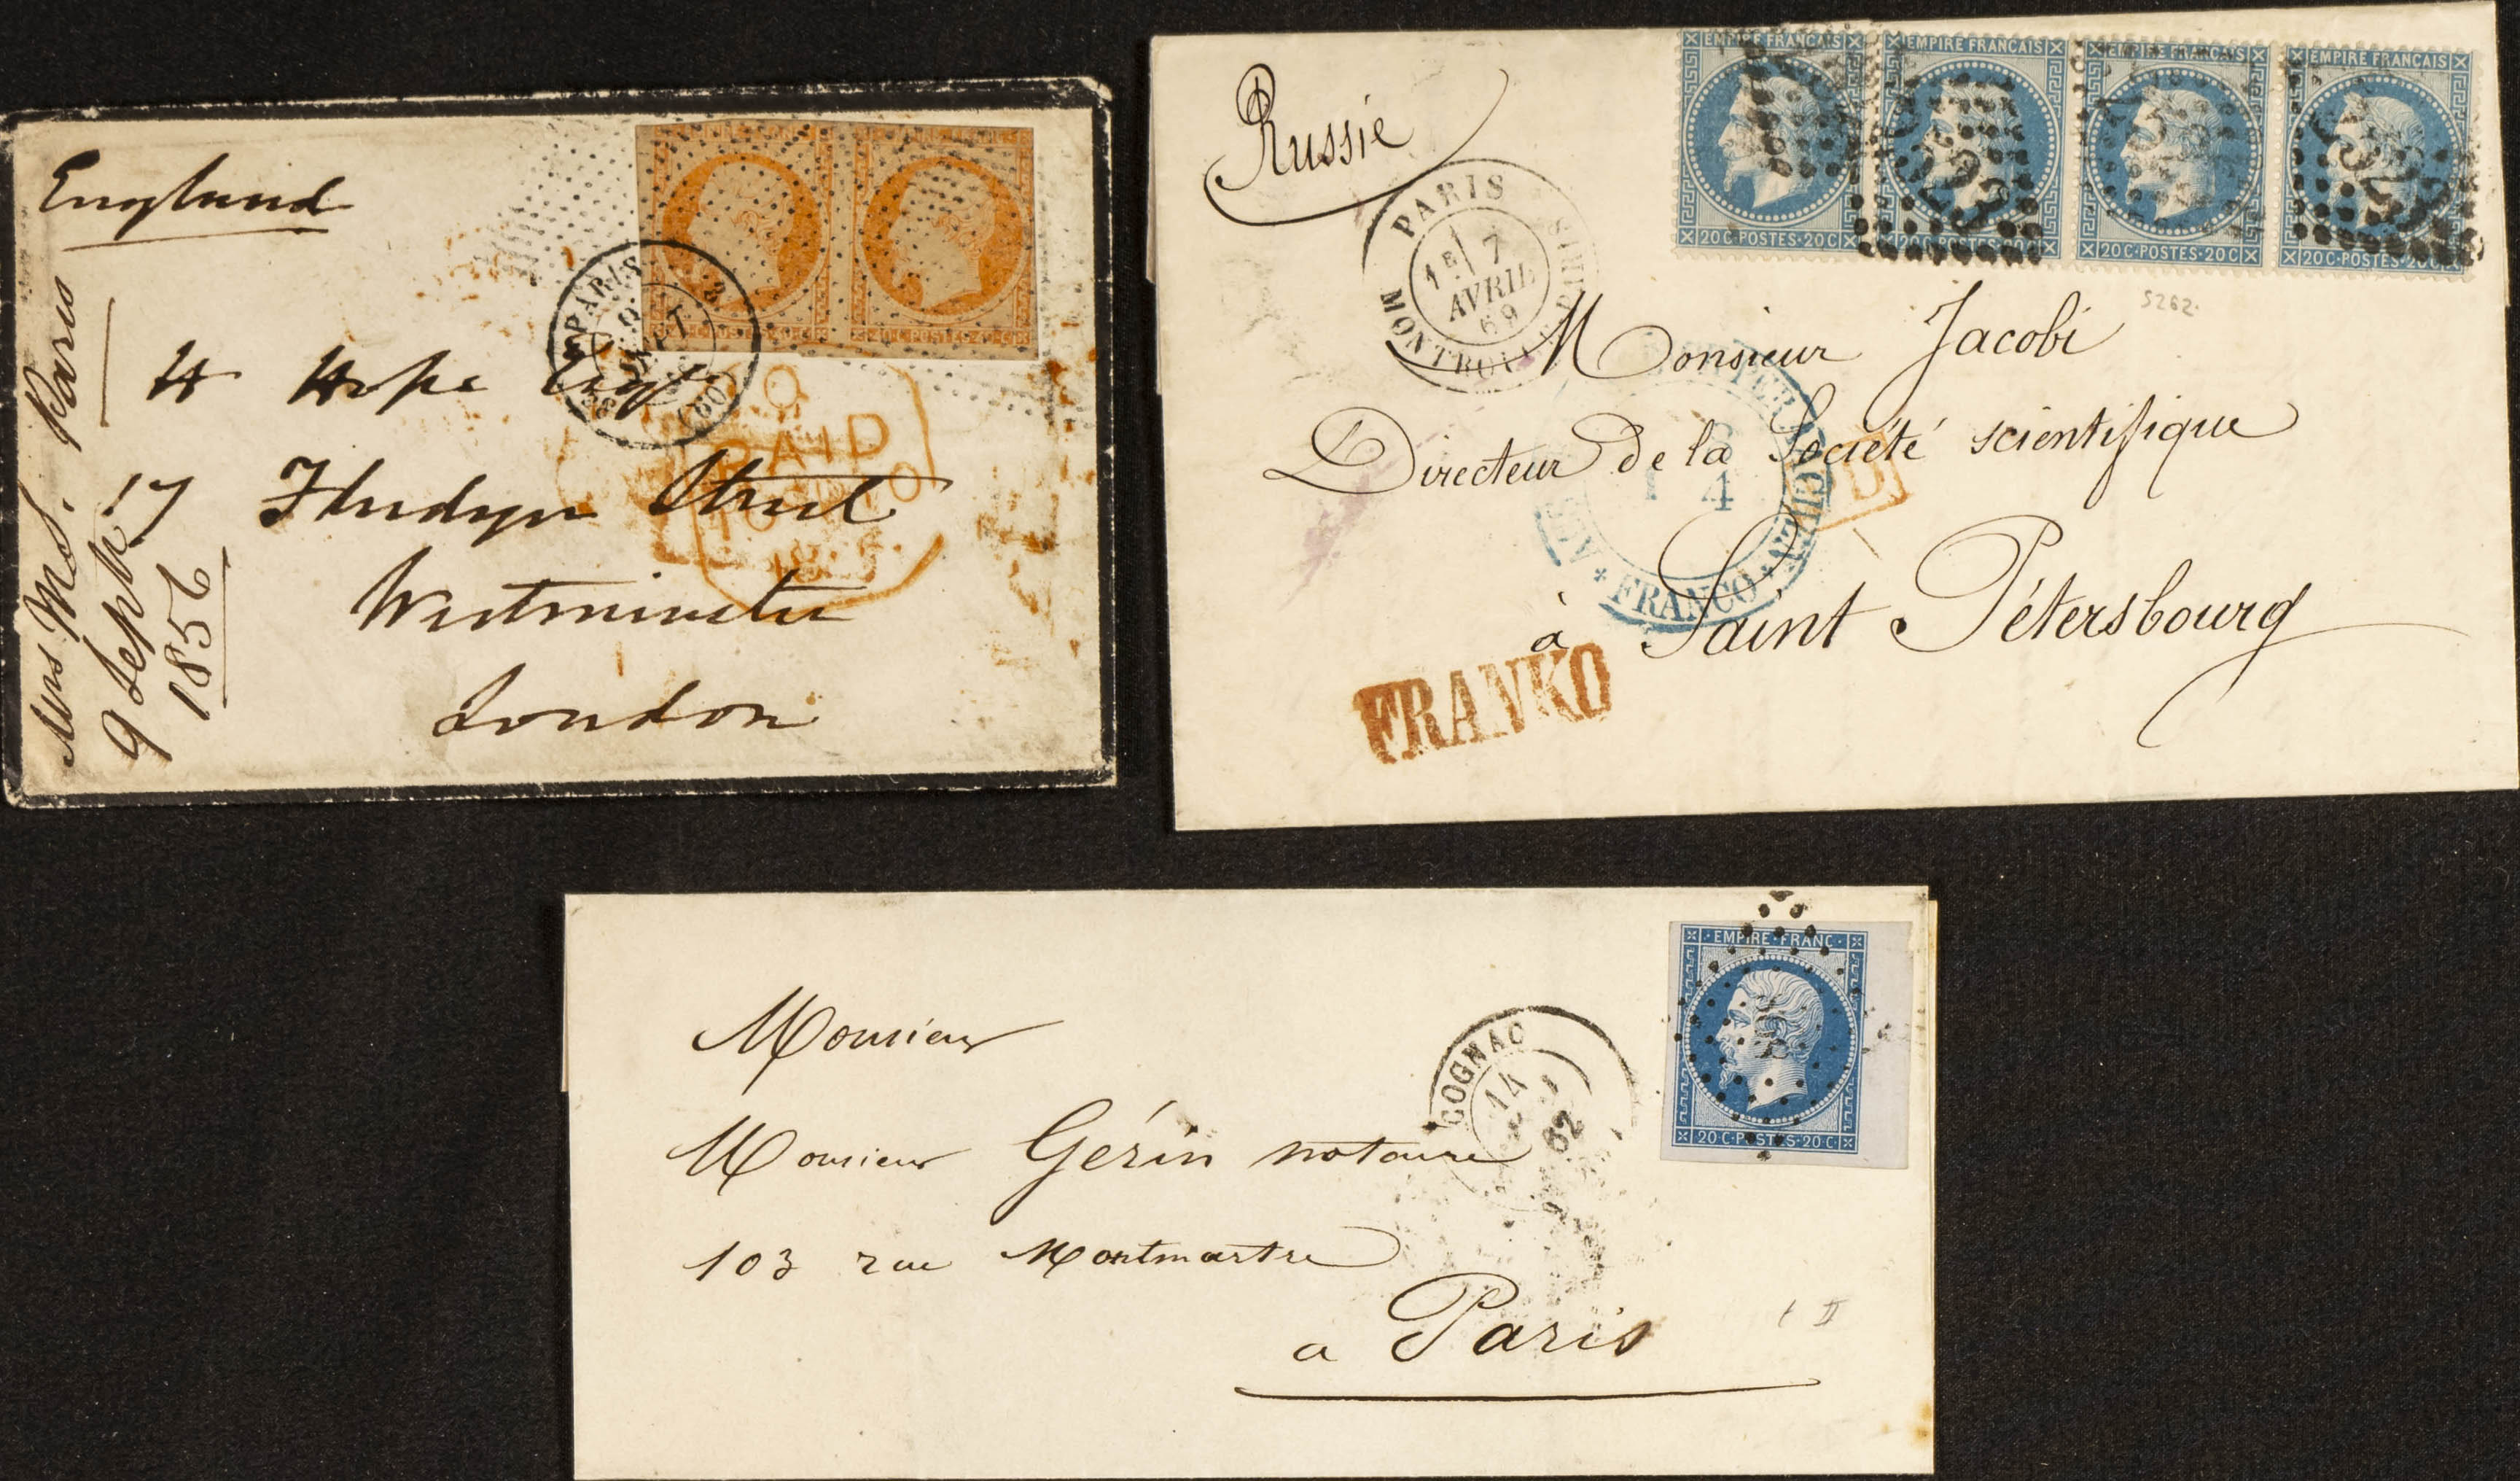 England
Paris
9 Septbr 17
1856
H Hope Esqr
Street
Westminster
London
PARIS
(60)
PAID
EMPIRE FRANCAIS
EMPIRE FRANCAIS
EMPIRE FRANCAIS
EMPIRE FRANCAIS
20 C·POSTES·20 C
20 C·POSTES·20 C
20 C·POSTES·20 C
20 C·POSTES·20 C
5262.
Russie
PARIS
1E 7
AVRIL
69
Monsieur Jacobi
Directeur de la Société scientifique
à Saint Pétersbourg
4
FRANCO
FRANKO
EMPIRE·FRANC
20 C·POSTES·20 C
COGNAC
14
62
Monsieur
Monsieur Gérin notaire
103 rue Montmartre
a Paris